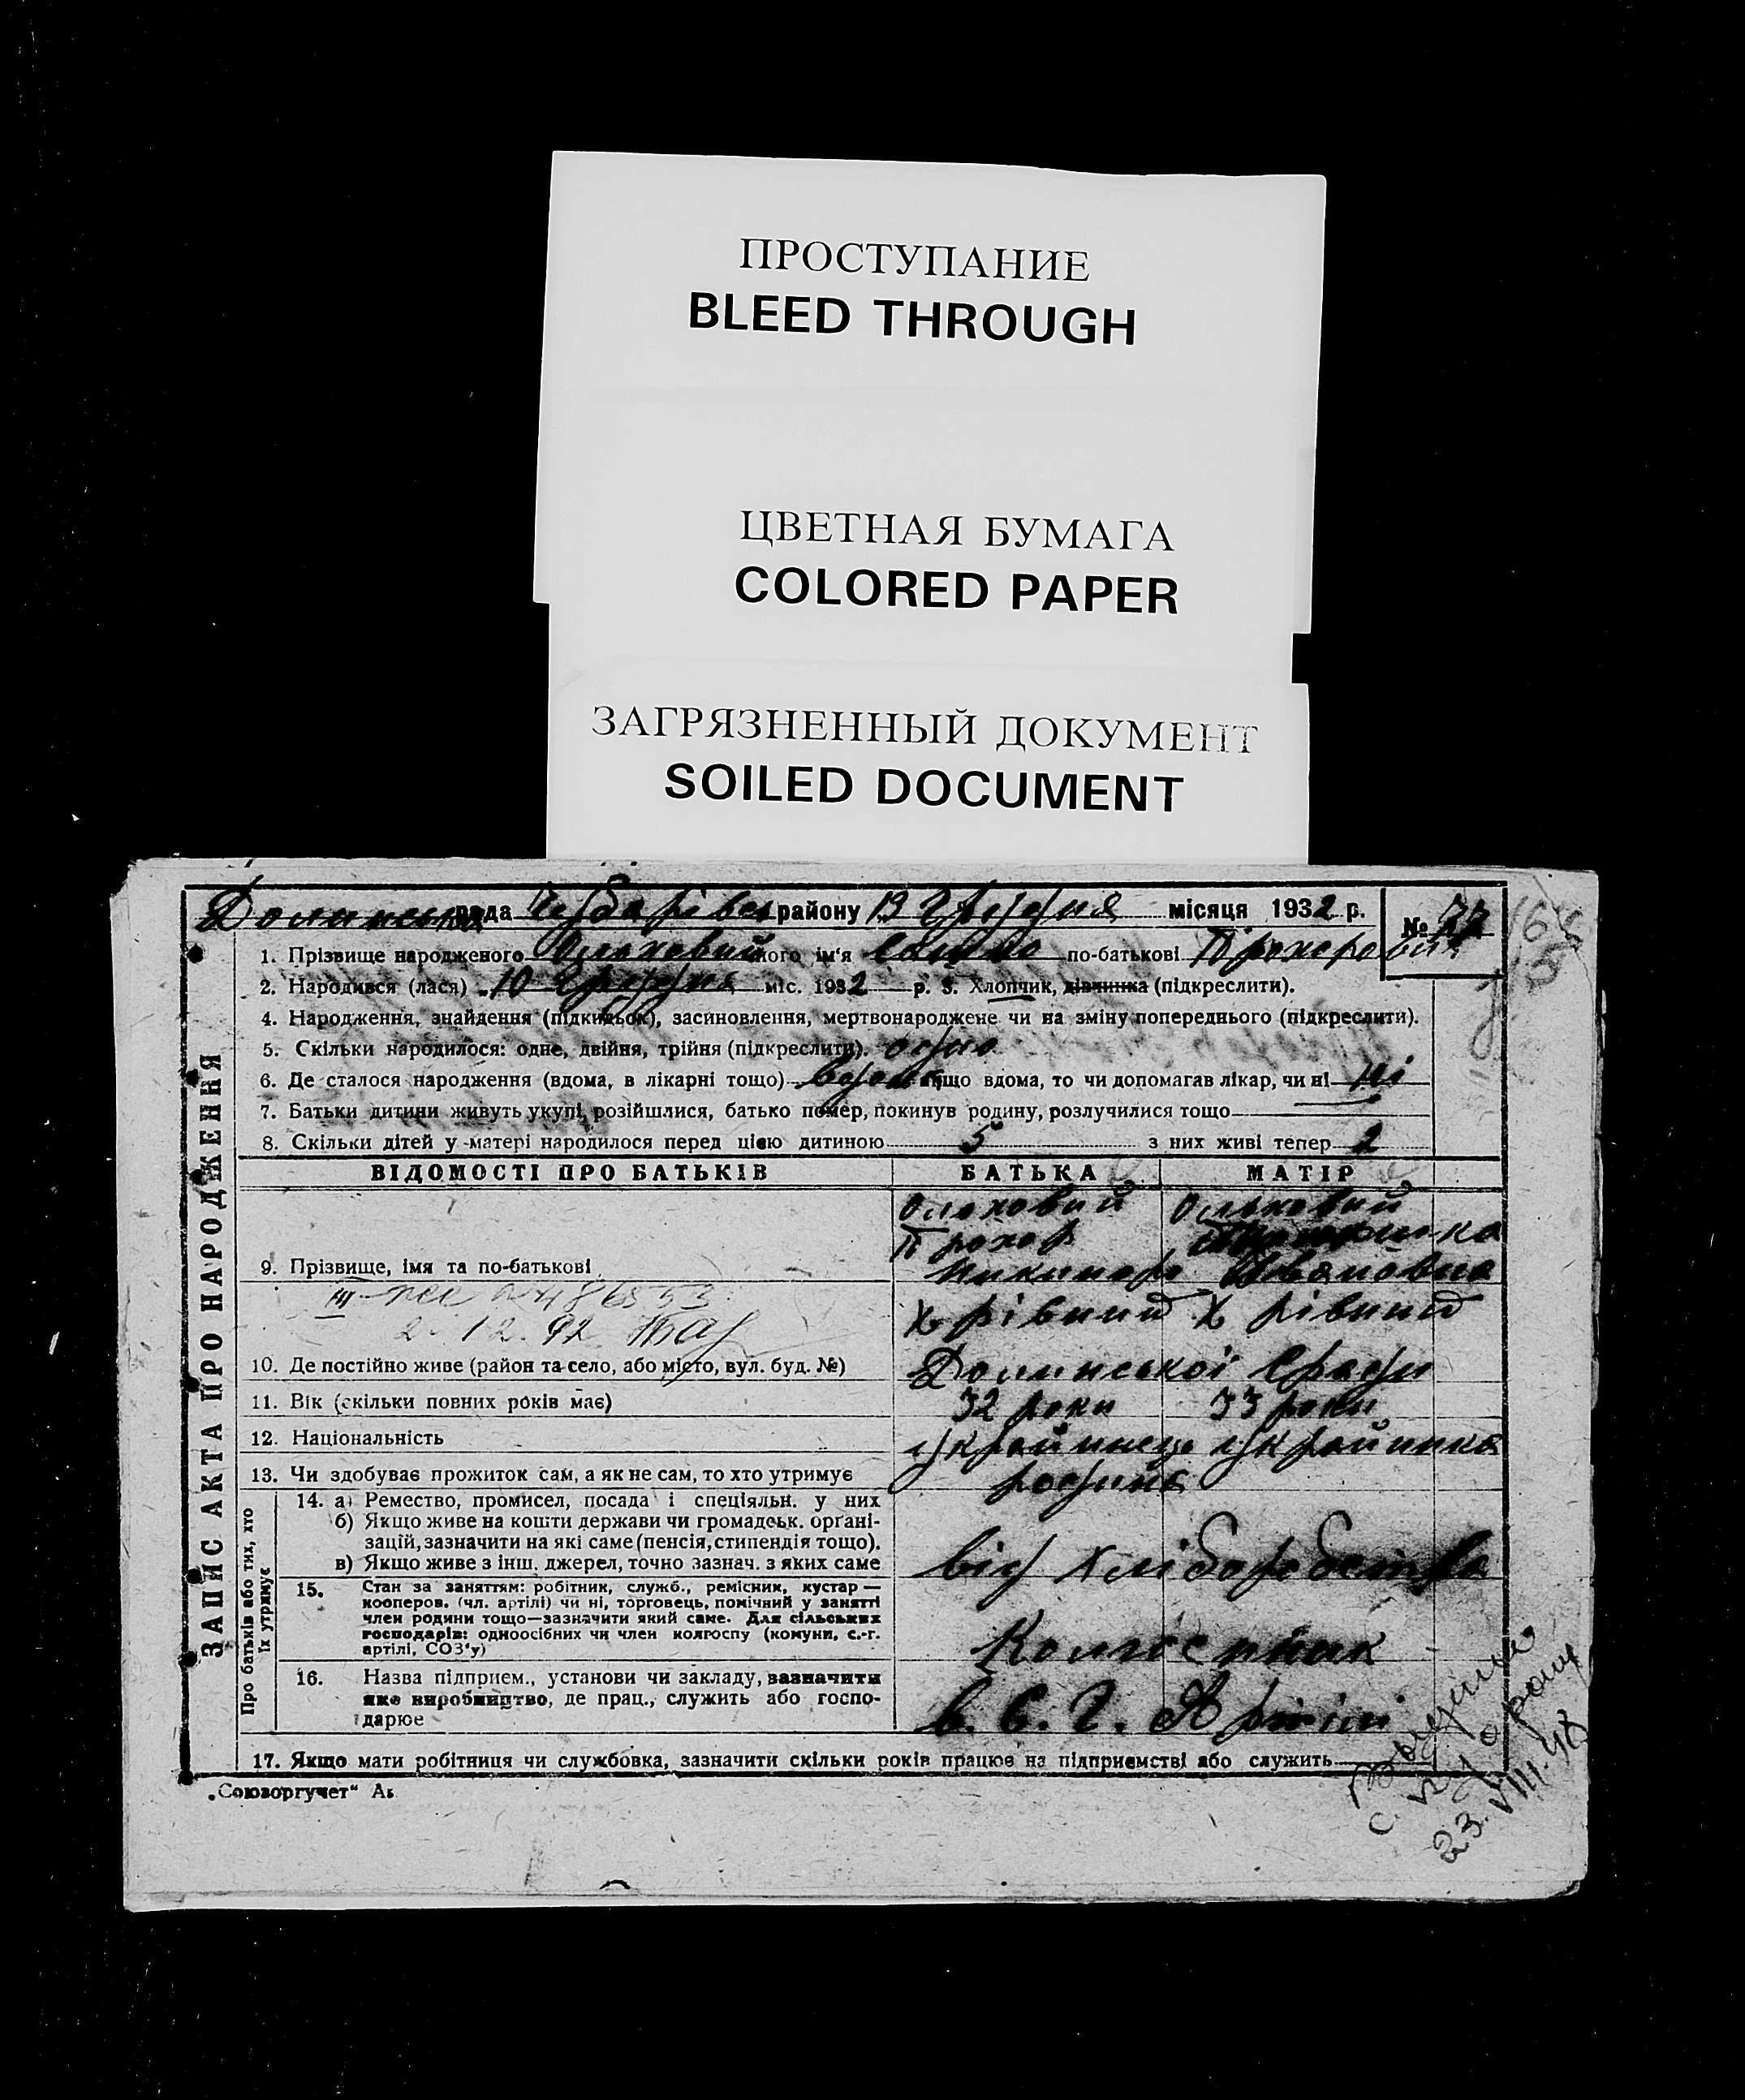 ПРОСТУПАНИЕ
BLEED THROUGH
ЦВЕТНАЯ БУМАГА
COLORED PAPER
ЗАГРЯЗНЕННЫЙ ДОКУМЕНТ
SOILED DOCUMENT
Долинська рада району 19 Грудня місяця 1932 р. №
1. Прізвище народженого Ольховий його ім'я по-батькові Прохорович
2. Народився (лася) „10 Грудня міс. 1932 р. 3. Хлопчик, дівчинка (підкреслити).
4. Народження, знайдення (підкидьок), засиновлення, мертвонароджене чи на зміну попереднього (підкреслити).
5. Скільки народилося: одне, двійня, трійня (підкреслити). одно
6. Де сталося народження (вдома, в лікарні тощо) вдома якщо вдома, то чи допомагав лікар, чи ні ні
7. Батьки дитини живуть укупі, розійшлися, батько помер, покинув родину, розлучилися тощо
8. Скільки дітей у матері народилося перед цією дитиною 5 з них живі тепер 2
ЗАПИС АКТА ПРО НАРОДЖЕННЯ
ВІДОМОСТІ ПРО БАТЬКІВ БАТЬКА МАТІР
Ольховий Ольховий
Прохор
9. Прізвище, імя та по-батькові
2. 12. 92
10. Де постійно живе (район та село, або місто, вул. буд. №) Долинської С/ради
11. Вік (скільки повних років має) 32 роки 33 роки
12. Національність украйинець украйинка
13. Чи здобуває прожиток сам, а як не сам, то хто утримує родина
Про батьків або тих, хто
їх утримує
14. а) Ремество, промисел, посада і спеціяльн. у них
б) Якщо живе на кошти держави чи громадськ. орґані-
зацій, зазначити на які саме (пенсія, стипендія тощо).
в) Якщо живе з інш. джерел, точно зазнач. з яких саме від хліборобства
15. Стан за заняттям: робітник, служб., ремісник, кустар —
кооперов. (чл. артілі) чи ні, торговець, помічний у занятті
член родини тощо—зазначити який саме. Для сільських
господарів: одноосібних чи член колгоспу (комуни, с.-г.
артілі, СОЗ'у) Колгоспник
16. Назва підприєм., установи чи закладу, зазначити
яке виробництво, де прац., служить або госпо-
дарює в С. Г. Артілі
17. Якщо мати робітниця чи службовка, зазначити скільки років працює на підприємстві або служить
„Союзоргучет"
23. VIII. 48